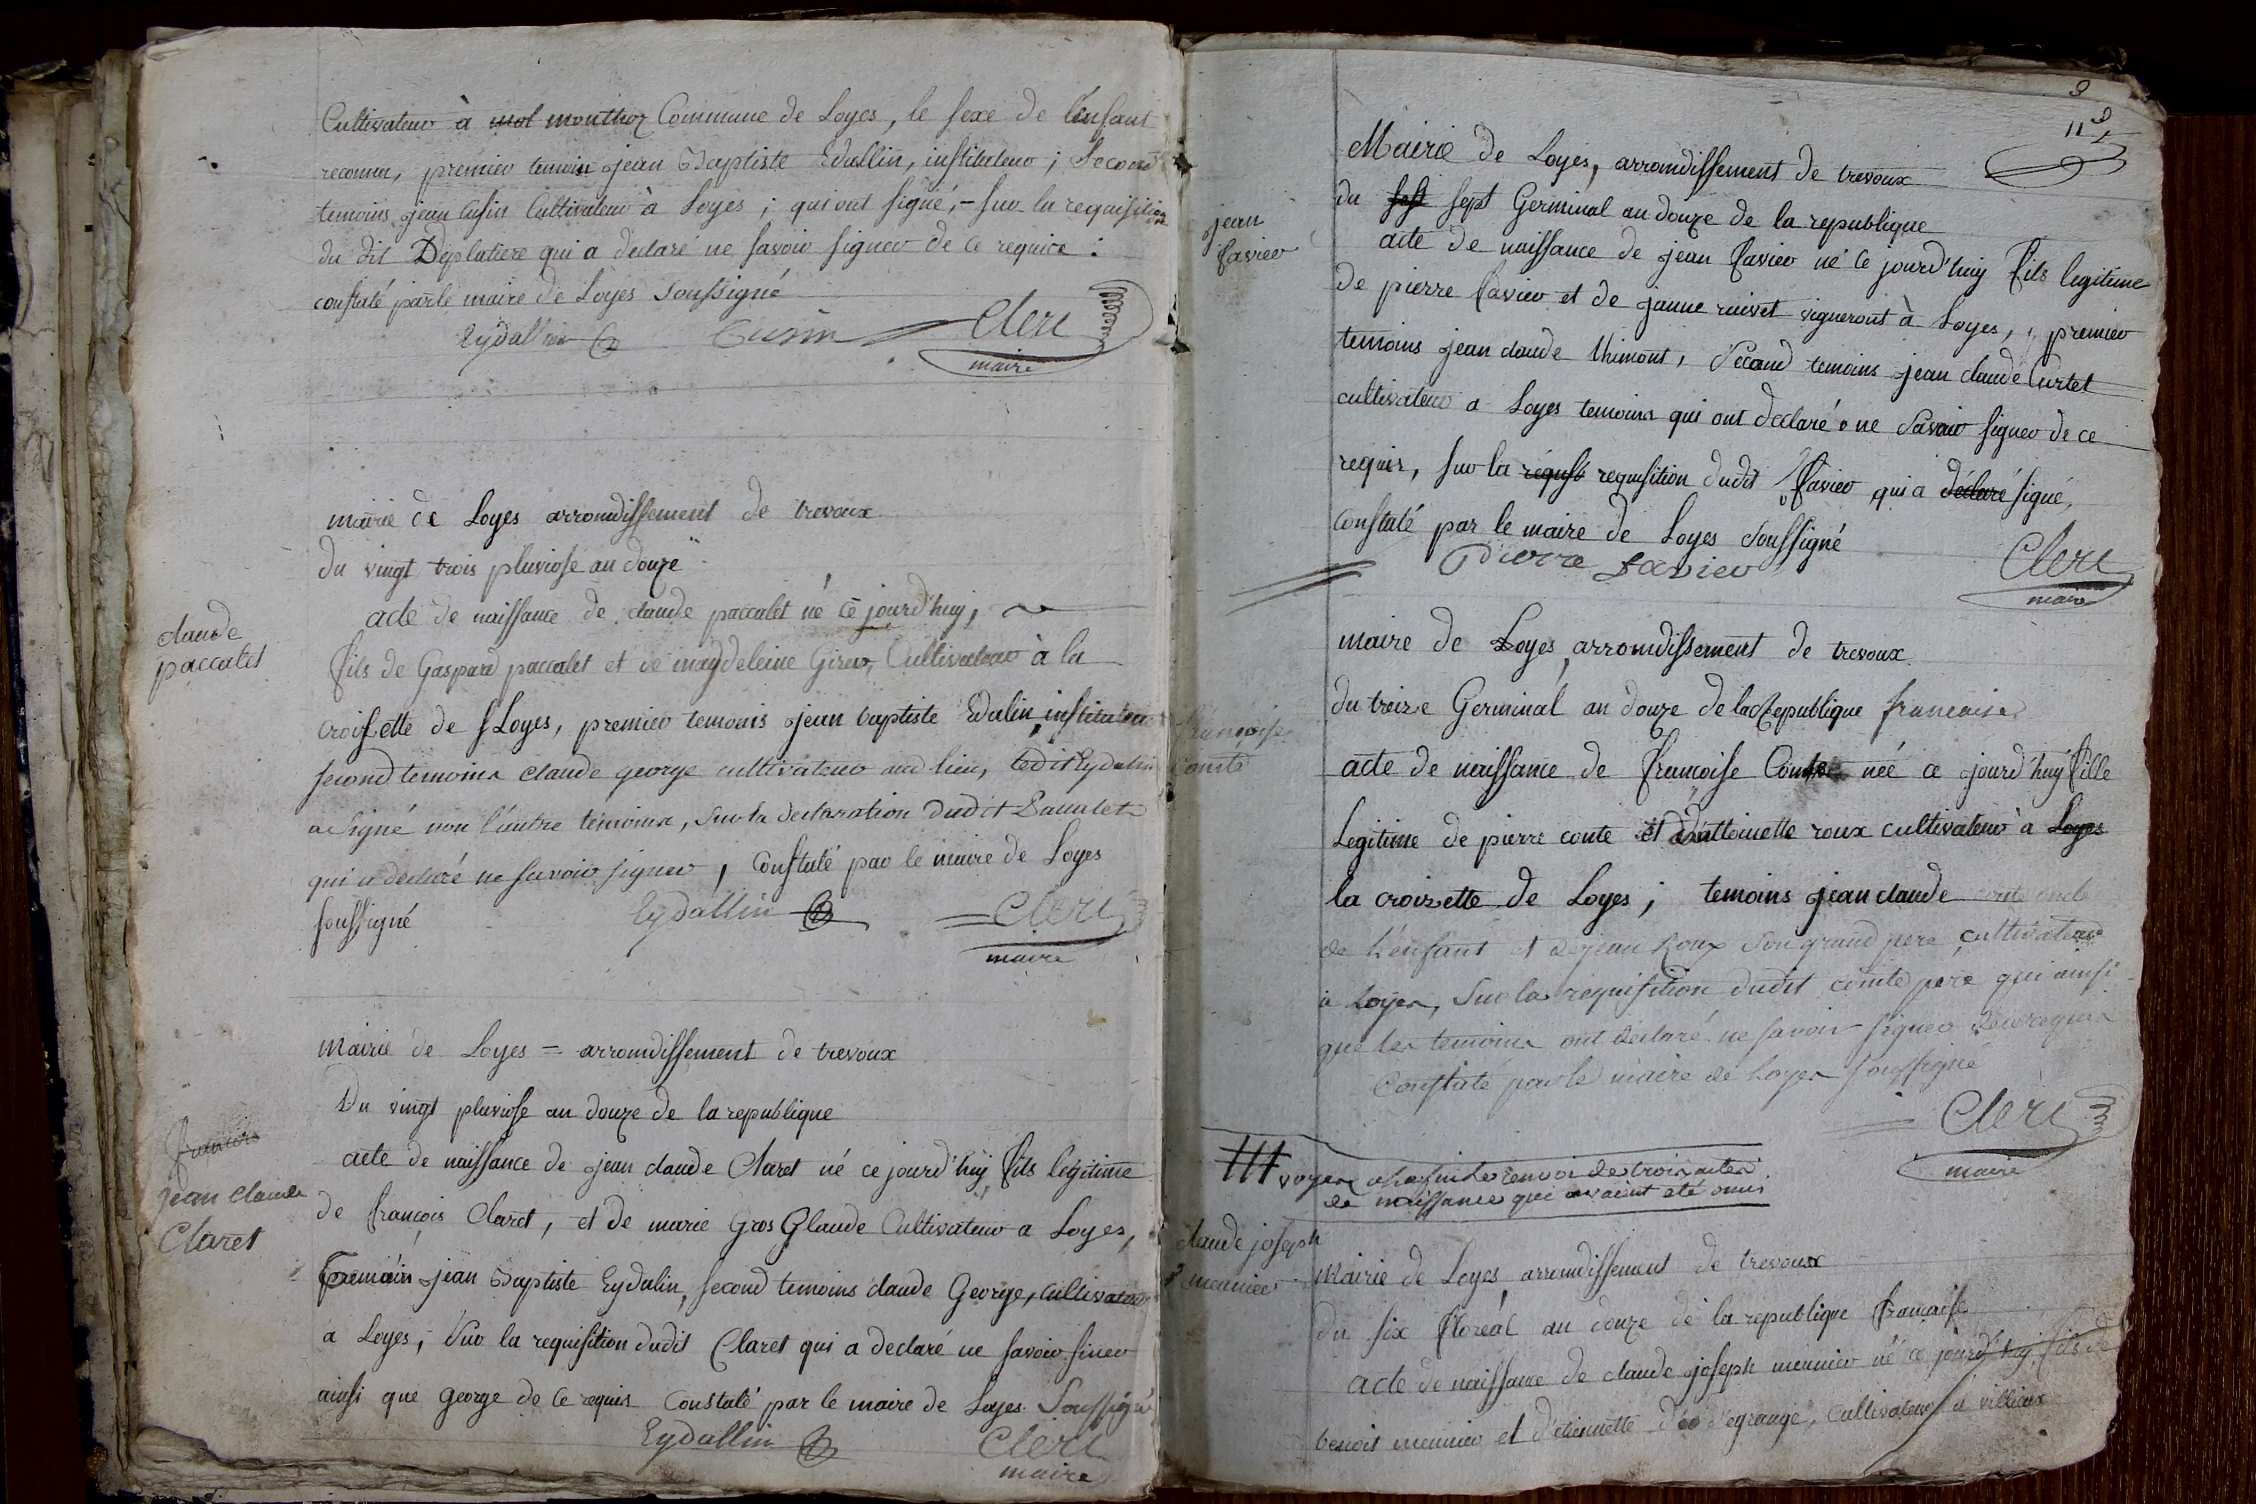 Cultivateur à mol monthoz Commune de Loyes, le sexe de l'enfant
reconnu, premier temoin jean Baptiste Edallin, instituteur ; second
temoins jean Cusin Cultivateur à Loyes ; qui ont signé, - sur la requisition
du dit Deplatiere qui a declaré ne savoir signer de ce requice :
constaté par le maire de Loyes soussigné
Eydallin Cusin Clerc
maire
mairie de Loyes arromdissement de trevoux
du vingt trois pluviose an douze
claude
paccalet
acte de naissance de claude paccalet né ce jourd'huy,
fils de Gaspard paccalet et de magdeleine Girer, Cultivateur à la
croisette de Loyes, premier temoins jean baptiste Edalin instituteur
second temoins claude george cultivateur au lieu, ledit Eydalin
a signé non l'autre temoins, sur la declaration dudit Paccalet
qui a declaré ne savoir signer, Constaté par le maire de Loyes
soussigné Eydallin Clerc
maire
mairie de Loyes = arromdissement de trevoux
Du vingt pluviose an douze de la republique
francois
jean claude
Claret
acte de naissance de jean claude Claret né ce jourd'huy fils legitime
de françois Claret, et de marie Gros Glaude Cultivateur a Loyes,
premier jean Baptiste Eydalin, second temoins claude George, cultivateur
a Loyes, Sur la requisition dudit Claret qui a declaré ne savoir siner
ainsi que george de ce requis Constaté par le maire de Loyes Soussigné
Eydallin Clerc
maire
3
11
Mairie de Loyes, arromdissement de trevoux
du sept Germinal an douze de la republique
jean
favier
acte de naissance de jean favier né ce jourd'huy fils legitime
de pierre favier et de janne ruivet vigneront à Loyes, premier
temoins jean claude thimont, Second temoins jean claude Curtet
cultivateur a Loyes temoins qui ont declaré ne Savoir signer de ce
requis, sur la requst requsition dudit favier qui a déclaré signé,
Constaté par le maire de Loyes Soussigné
Pierre favier Clerc
maire
maire de Loyes, arromdissement de trevoux
du treize Germinal an douze de la Republique francaise
francoise
Comte
acte de naissance de françoise Comte née ce jourd'huy fille
Legitime de pierre conte et d'antoinette roux cultivateur à Loyes
la croizette de Loyes ; temoins jean claude conte oncle
de l'enfant et de jean Roux son grand pere cultivateur
à Loyes, Sur la requisition dudit comte pere qui ainsi
que les temoins ont declaré ne savoir signer de ce requis
Constaté par le maire de Loyes soussigné
Clerc
maire
voyez a la fin le renvoi de trois actes
de naissance qui avaient été omis
claude joseph
meunier
mairie de Loyes, arromdissement de trevoux
du six floréal an douze de la republique française
acte de naissance de claude joseph meunier né ce jourd'huy fils de
benoit meunier et d'etiennette degrange, Cultivateur à villieux